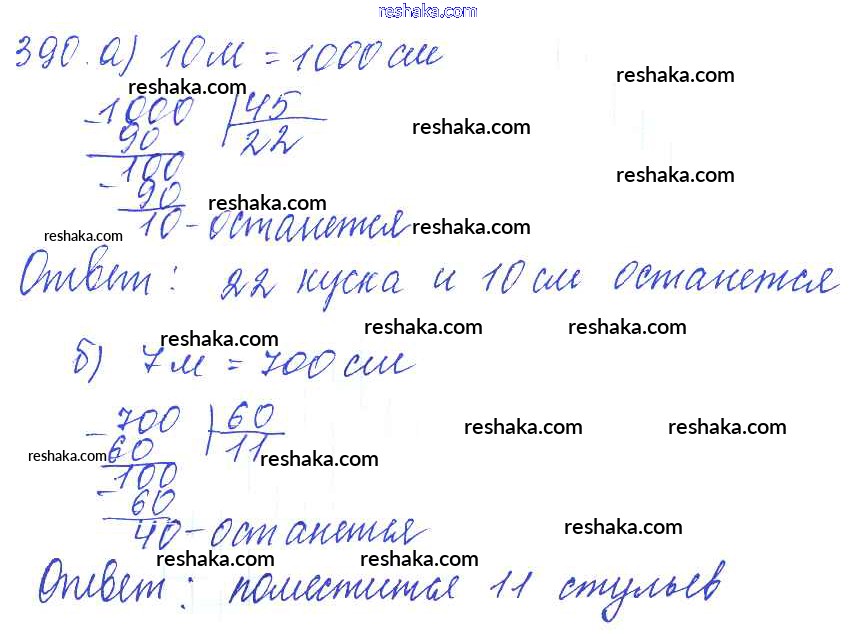 reshaka.com
390. а) 10 м = 1000 см
reshaka.com
reshaka.com
1000 | 45
reshaka.com
90 22
- 100
reshaka.com
90
reshaka.com
10 - останется
reshaka.com
reshaka.com
Ответ: 22 куска и 10 см останется
reshaka.com
reshaka.com
reshaka.com
б) 7 м = 700 см
- 700 | 60
reshaka.com
reshaka.com
60 11
reshaka.com
reshaka.com
- 100
60
40 - останется
reshaka.com
reshaka.com
reshaka.com
Ответ: поместится 11 стульев